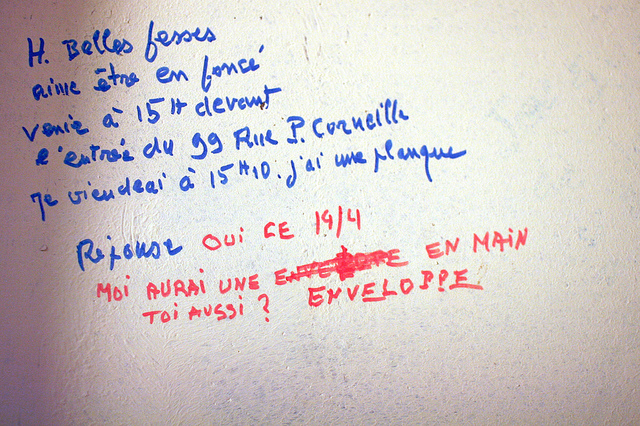 H. Belles fesses
aime être en foncé
venir à 15H devant
l'entrée du 99 Rue P. Corneille
je viendrai à 15H10. j'ai une planque
Réponse OUI CE 19/4
MOI AURAI UNE EN MAIN
TOI AUSSI ? ENVELOPPE